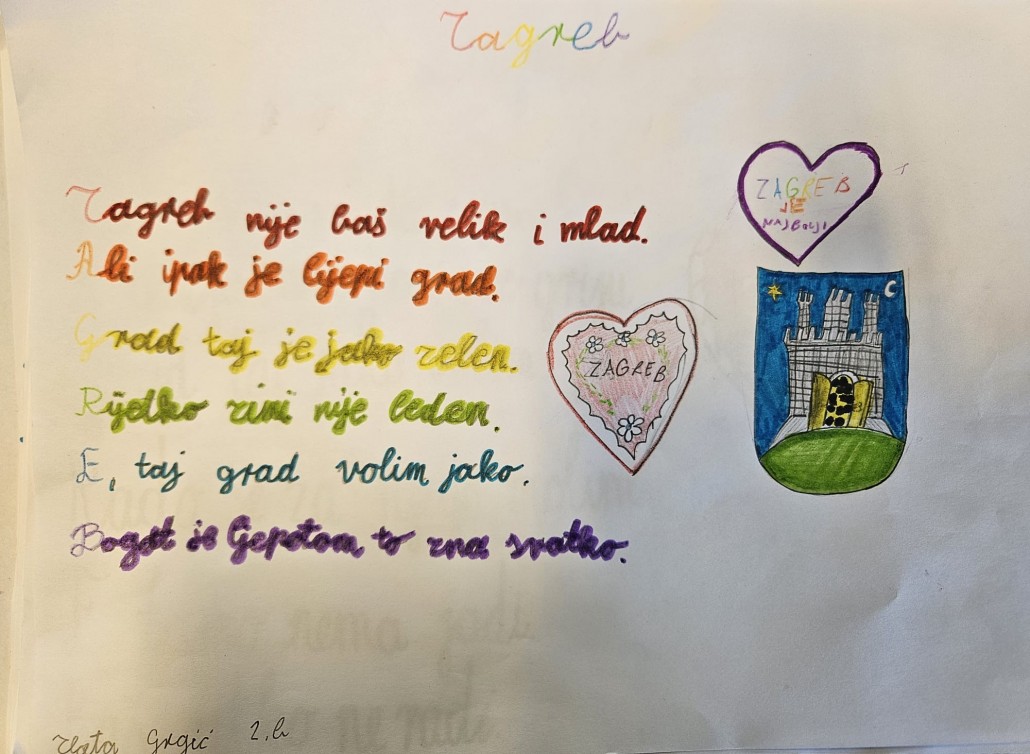 Zagreb
Zagreb nije baš velik i mlad.
Ali ipak je lijepi grad.
Grad taj je jako zelen.
Rijetko zimi nije leden.
E, taj grad volim jako.
Bogat je ljepotom, to zna svatko.
ZAGREB
JE
NAJBOLJI
ZAGREB
Zlata Grgić 2.b